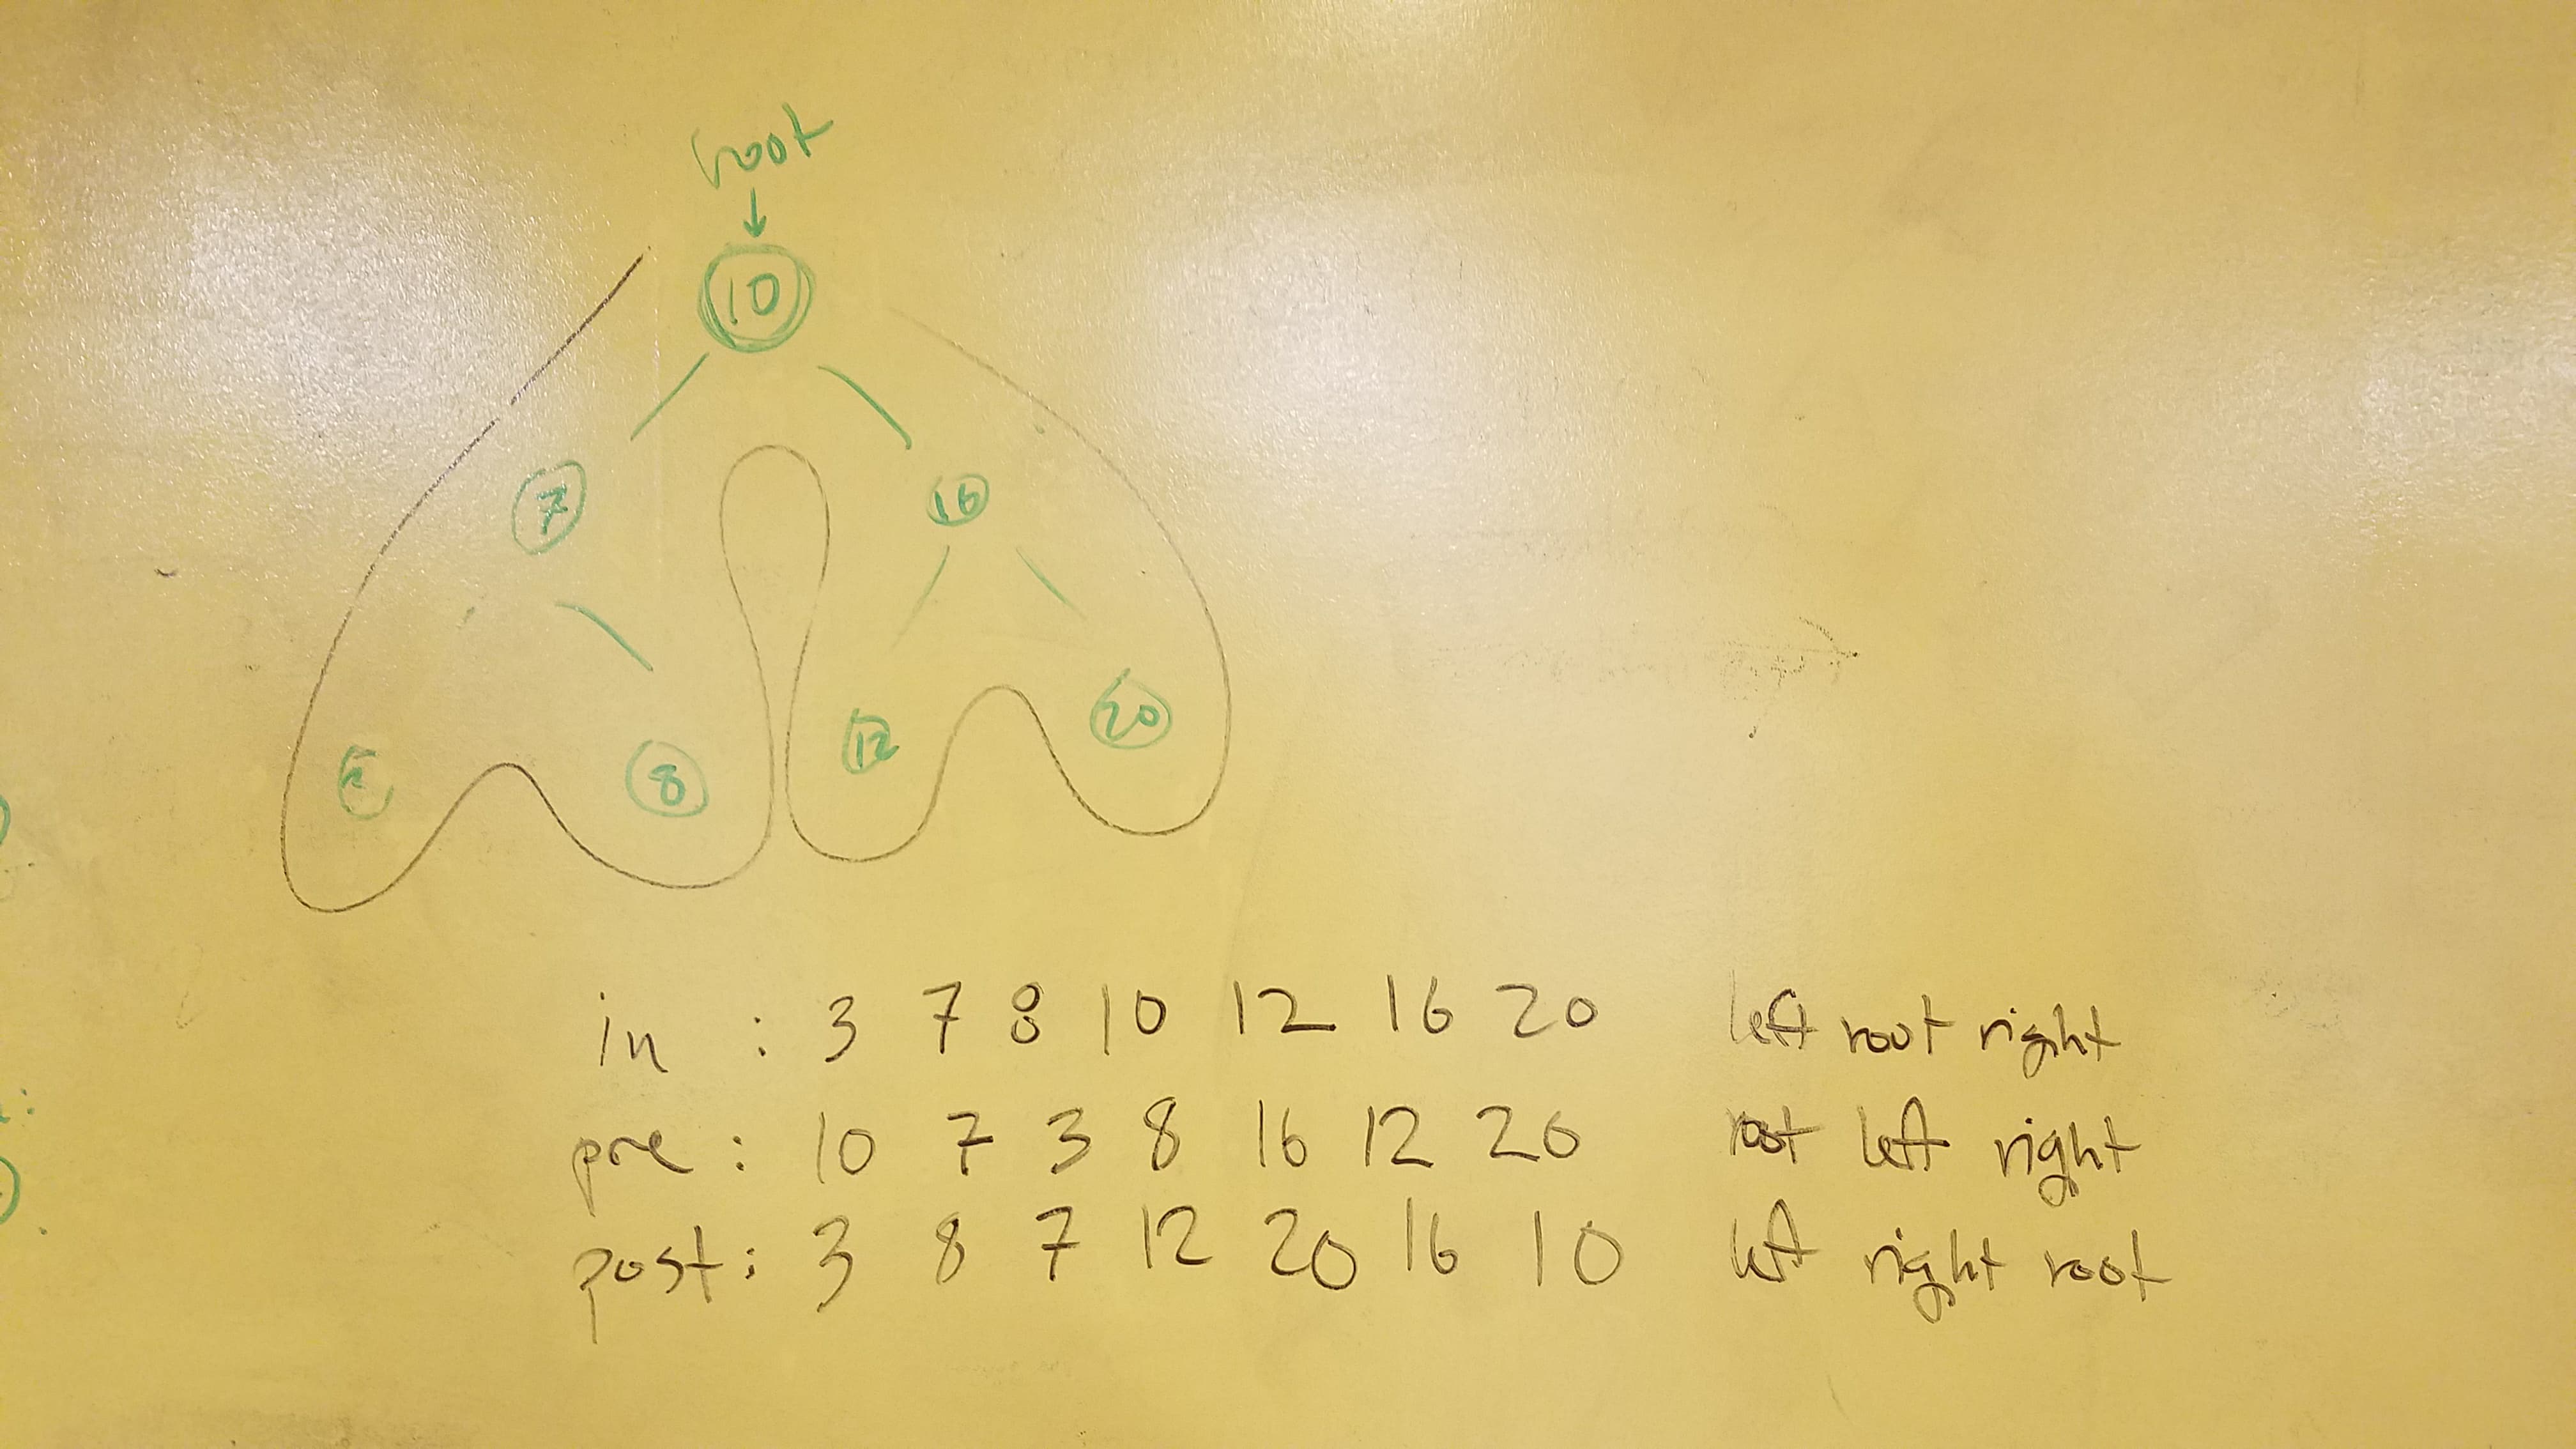 root
10
7 16
8 12 20
in : 3 7 8 10 12 16 20 left root right
pre : 10 7 3 8 16 12 20 root left right
post : 3 8 7 12 20 16 10 left right root